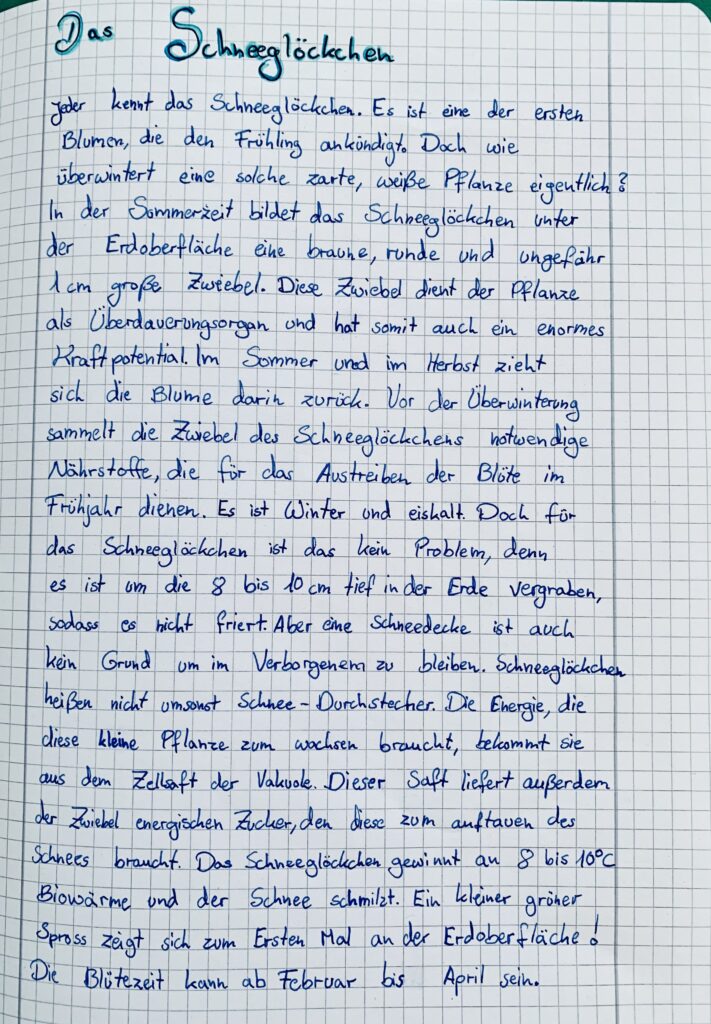 Das Schneeglöckchen
Jeder kennt das Schneeglöckchen. Es ist eine der ersten
Blumen, die den Frühling ankündigt. Doch wie
überwintert eine solche zarte, weiße Pflanze eigentlich?
In der Sommerzeit bildet das Schneeglöckchen unter
der Erdoberfläche eine braune, runde und ungefähr
1 cm große Zwiebel. Diese Zwiebel dient der Pflanze
als Überdauerungsorgan und hat somit auch ein enormes
Kraftpotential. Im Sommer und im Herbst zieht
sich die Blume darin zurück. Vor der Überwinterung
sammelt die Zwiebel des Schneeglöckchens notwendige
Nährstoffe, die für das Austreiben der Blüte im
Frühjahr dienen. Es ist Winter und eiskalt. Doch für
das Schneeglöckchen ist das kein Problem, denn
es ist um die 8 bis 10 cm tief in der Erde vergraben,
sodass es nicht friert. Aber eine Schneedecke ist auch
kein Grund um im Verborgenem zu bleiben. Schneeglöckchen
heißen nicht umsonst Schnee-Durchstecher. Die Energie, die
diese kleine Pflanze zum wachsen braucht, bekommt sie
aus dem Zellsaft der Vakuole. Dieser Saft liefert außerdem
der Zwiebel energischen Zucker, den diese zum auftauen des
Schnees braucht. Das Schneeglöckchen gewinnt an 8 bis 10°C
Biowärme und der Schnee schmilzt. Ein kleiner grüner
Spross zeigt sich zum Ersten Mal an der Erdoberfläche!
Die Blütezeit kann ab Februar bis April sein.